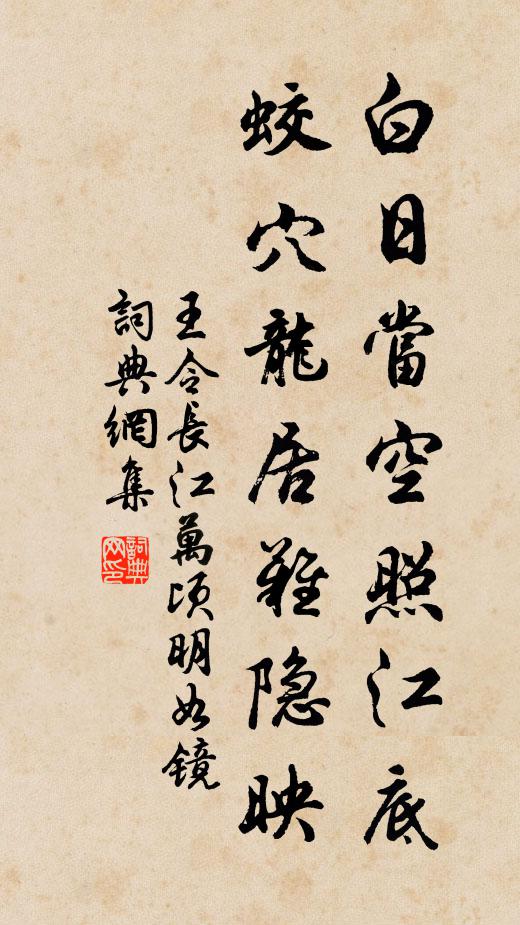 白日當空照江底
蛟穴龍居難隐映
王令長江萬頃明如鏡
詞典網集
詞典網印